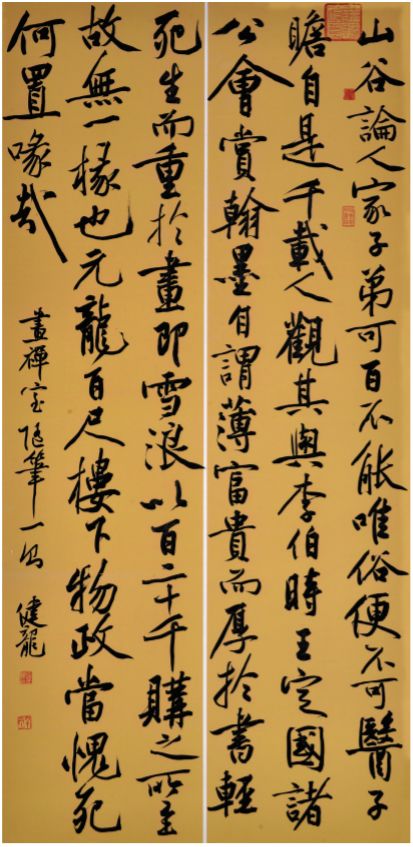 山谷論人家子弟可百不能唯俗便不可醫子
瞻自是千載人觀其與李伯時王定國諸
公會賞翰墨自謂薄富貴而厚於書輕
死生而重於畫即雪浪以百二十千購之所至
故無一椽也元龍百尺樓下物政當愧死
何置喙哉
畫禪室隨筆一則 健龍